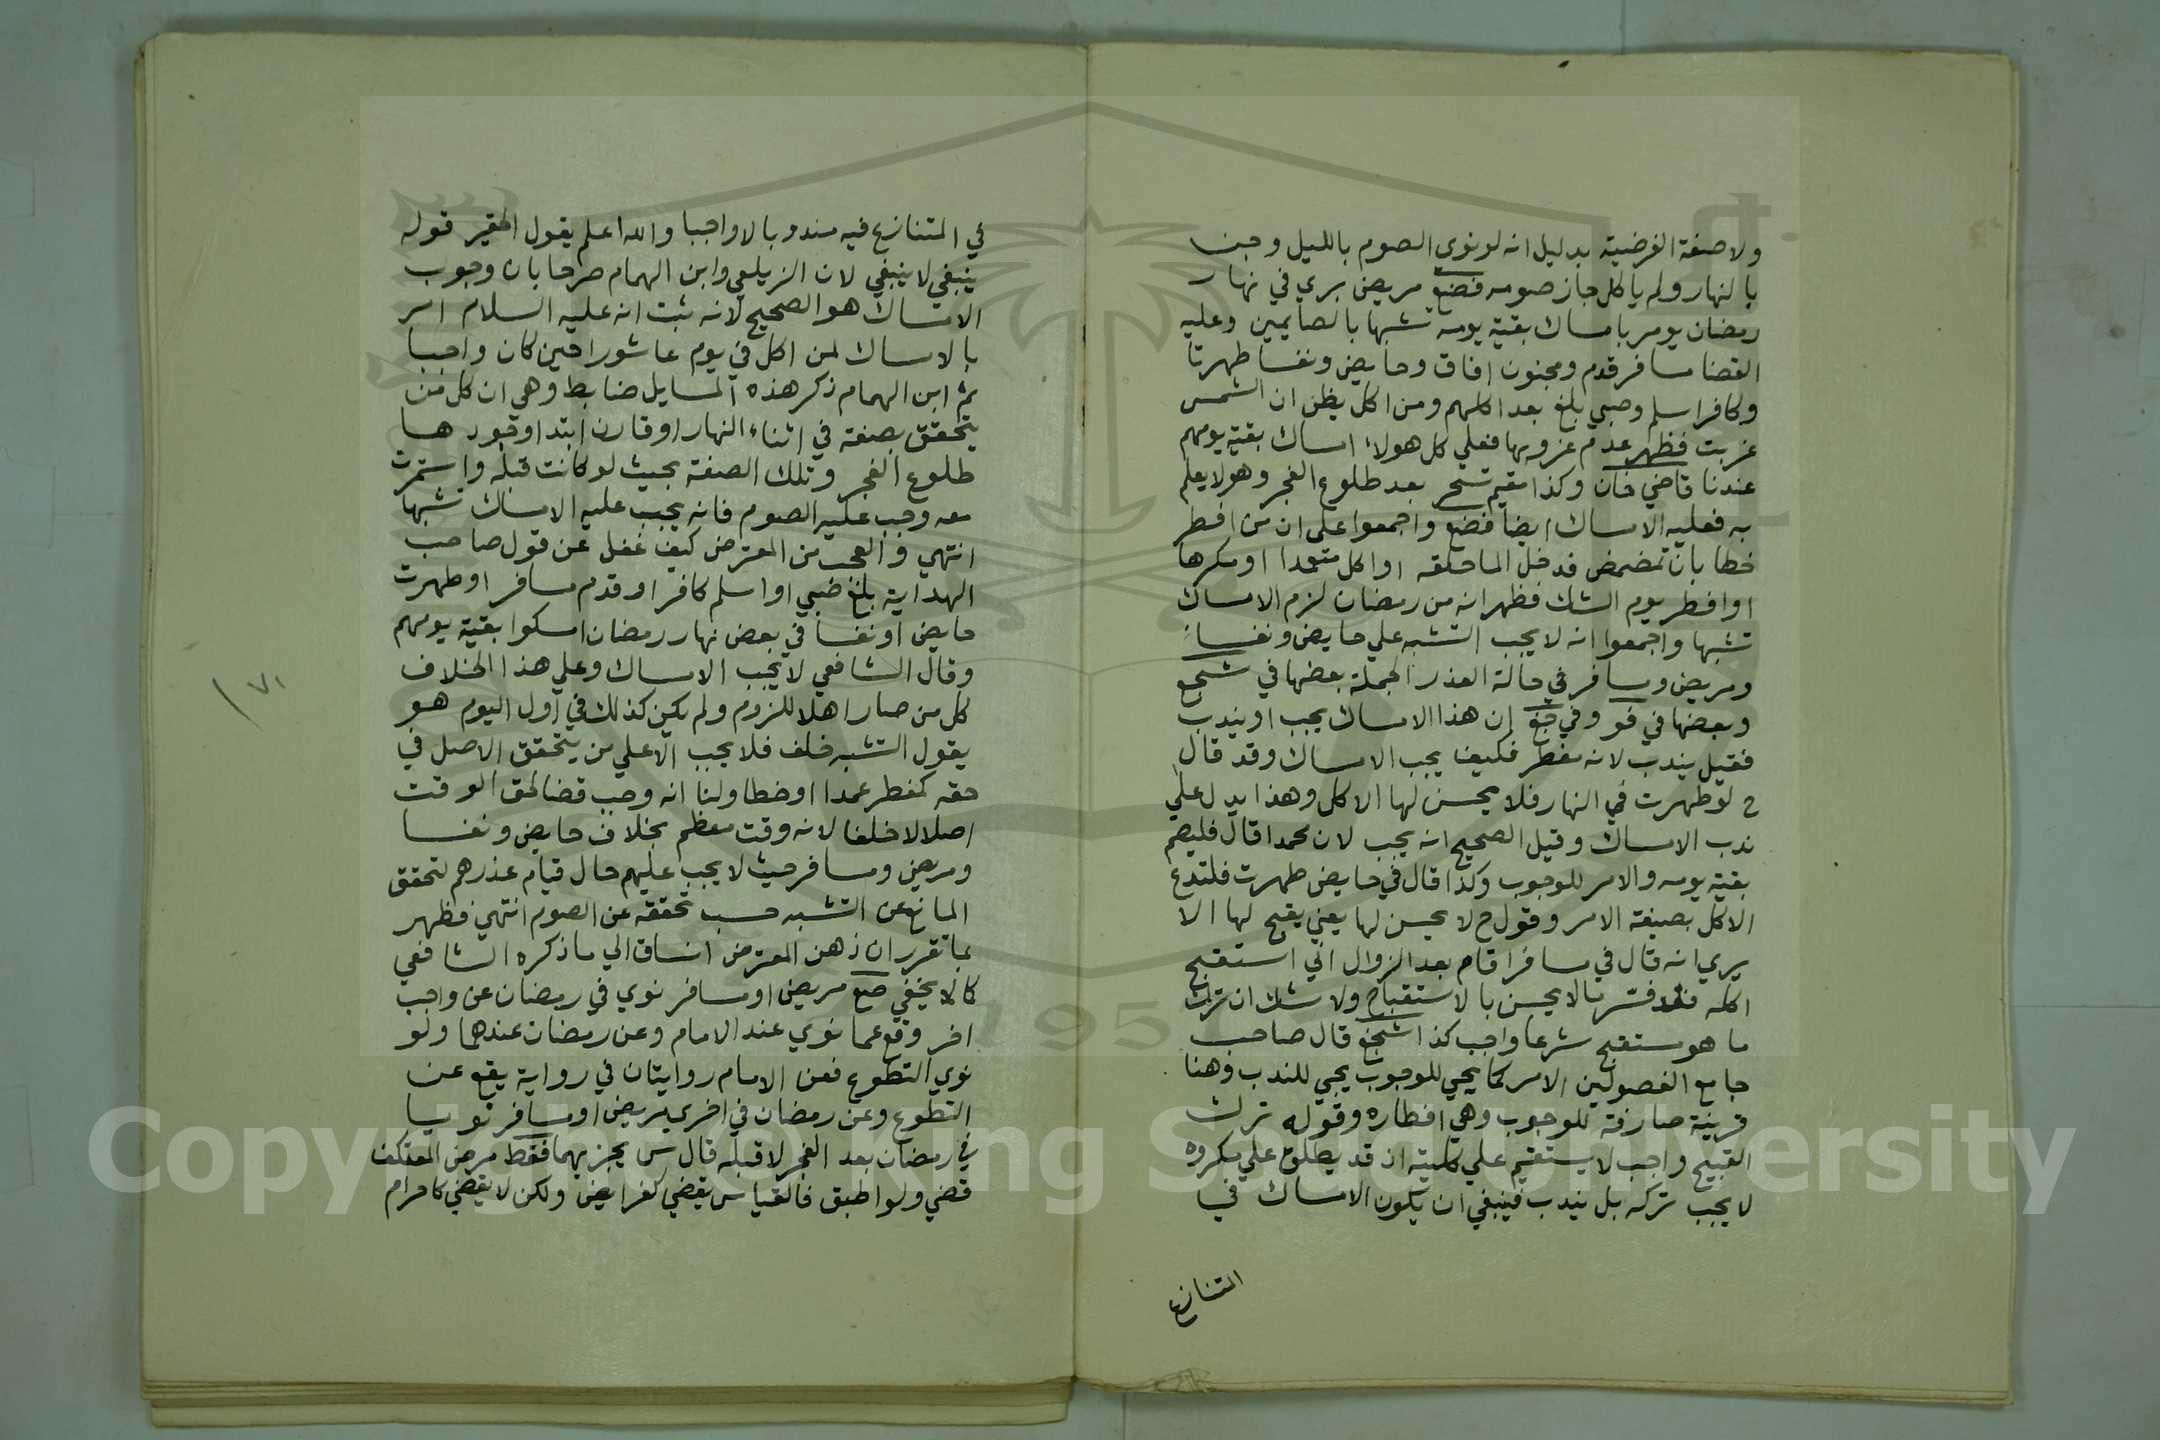 ولا صفة الفرضية بدليل انه لو نوى الصوم بالليل وجن
بالنهار ولم ياكل جاز صومه فضع مريض بري في نهار
رمضان يومر بامساك بقية يومه تشبها بالصايمين وعليه
القضا مسافر قدم ومجنون افاق وحايض ونفسا طهرتا
وكافر اسلم وصبي بلغ بعد اكلهم ومن اكل يظن ان الشمس
غربت فظهر عدم غروبها فعلي كل هولاء امساك بقية يومهم
عندنا قاضي خان وكذا مقيم تسحر بعد طلوع الفجر وهو لا يعلم
به فعليه الامساك ايضا فضع واجمعوا على ان من افطر
خطا بان تمضمض فدخل الما حلقه او اكل متعمدا او مكرها
او افطر يوم الشك فظهر انه من رمضان لزم الامساك
تشبها واجمعوا انه لا يجب التشبه علي حايض ونفساء
ومريض ومسافر في حالة العذر الجملة بعضها في شجع
وبعضها في فو وفي إن هذا الامساك يجب او يندب
فقيل يندب لانه مفطر فكيف يجب الامساك وقد قال
ح لو طهرت في النهار فلا يحسن لها الاكل وهذا يدل علي
ندب الامساك وقيل الصحيح انه يجب لان محمدا قال فليصم
بقية يومه والامر للوجوب وكذا قال في حايض طهرت فلتدع
الاكل بصيغة الامر وقول ح لا يحسن لها يعني يقبح لها الا
يري انه قال في مسافر اقام بعد الزوال اني استقبح
اكله فقد فسر ما لا يحسن بالاستقباح ولا شك ان ترك
ما هو مستقبح شرعا واجب كذا شجع قال صاحب
جامع الفصولين الامر كما يجي للوجوب يجي للندب وهنا
قرينة صارفة للوجوب وهي افطاره وقوله ترك
القبيح واجب لا يستقيم علي كليته اذ قد يطلق علي مكروه
لا يجب تركه بل يندب فينبغي ان يكون الامساك في
المتنازع
في المتنازع فيه مندوبا لا واجبا والله اعلم يقول الحقير قوله
ينبغي لا ينبغي لان الزيلعي وابن الهمام صرحا بان وجوب
الامساك هو الصحيح لانه ثبت انه عليه السلام امر
بالامساك لمن اكل في يوم عاشورا حين كان واجبا
ثم ابن الهمام ذكر هذه المسايل ضابط وهي ان كل من
يتحقق بصفة في اثناء النهار او قارن ابتدا وجودها
طلوع الفجر وتلك الصفة بحيث لو كانت قبله واستمرت
معه وجب عليه الصوم فانه يجب عليه الامساك تشبها
انتهي والعجب من المعترض كيف غفل عن قول صاحب
الهداية بلغ صبي او اسلم كافر او قدم مسافر او طهرت
حايض او نفسا في بعض نهار رمضان امسكوا بقية يومهم
وقال الشافعي لا يجب الامساك وعلي هذا الخلاف
كل من صار اهلا للزوم ولم يكن كذلك في اول اليوم هو
يقول التشبه خلف فلا يجب الا علي من يتحقق الاصل في
حقه كمفطر عمدا او خطا ولنا انه وجب قضا لحق الوقت
اصلا لا خلفا لانه وقت معظم بخلاف حايض ونفسا
ومريض ومسافر حيث لا يجب عليهم حال قيام عذرهم لتحقق
المانع عن التشبه حسب تحققه عن الصوم انتهي فظهر
بما تقرر ان ذهن المعترض انساق الي ما ذكره الشافعي
كما لا يخفي صع مريض او مسافر نوي في رمضان عن واجب
اخر وقع عما نوي عند الامام وعن رمضان عندهما ولو
نوي التطوع فعن الامام روايتان في رواية يقع عن
التطوع وعن رمضان في اخرى مريض او مسافر نويا
في رمضان بعد الفجر لا قبله قال س يجزيهما فقط مرض المعتكف
قضي ولو اطبق فالقياس يقضي كفرايض ولكن لا يقضي كاحرام
٧١
Copyright © King Saud University
1957